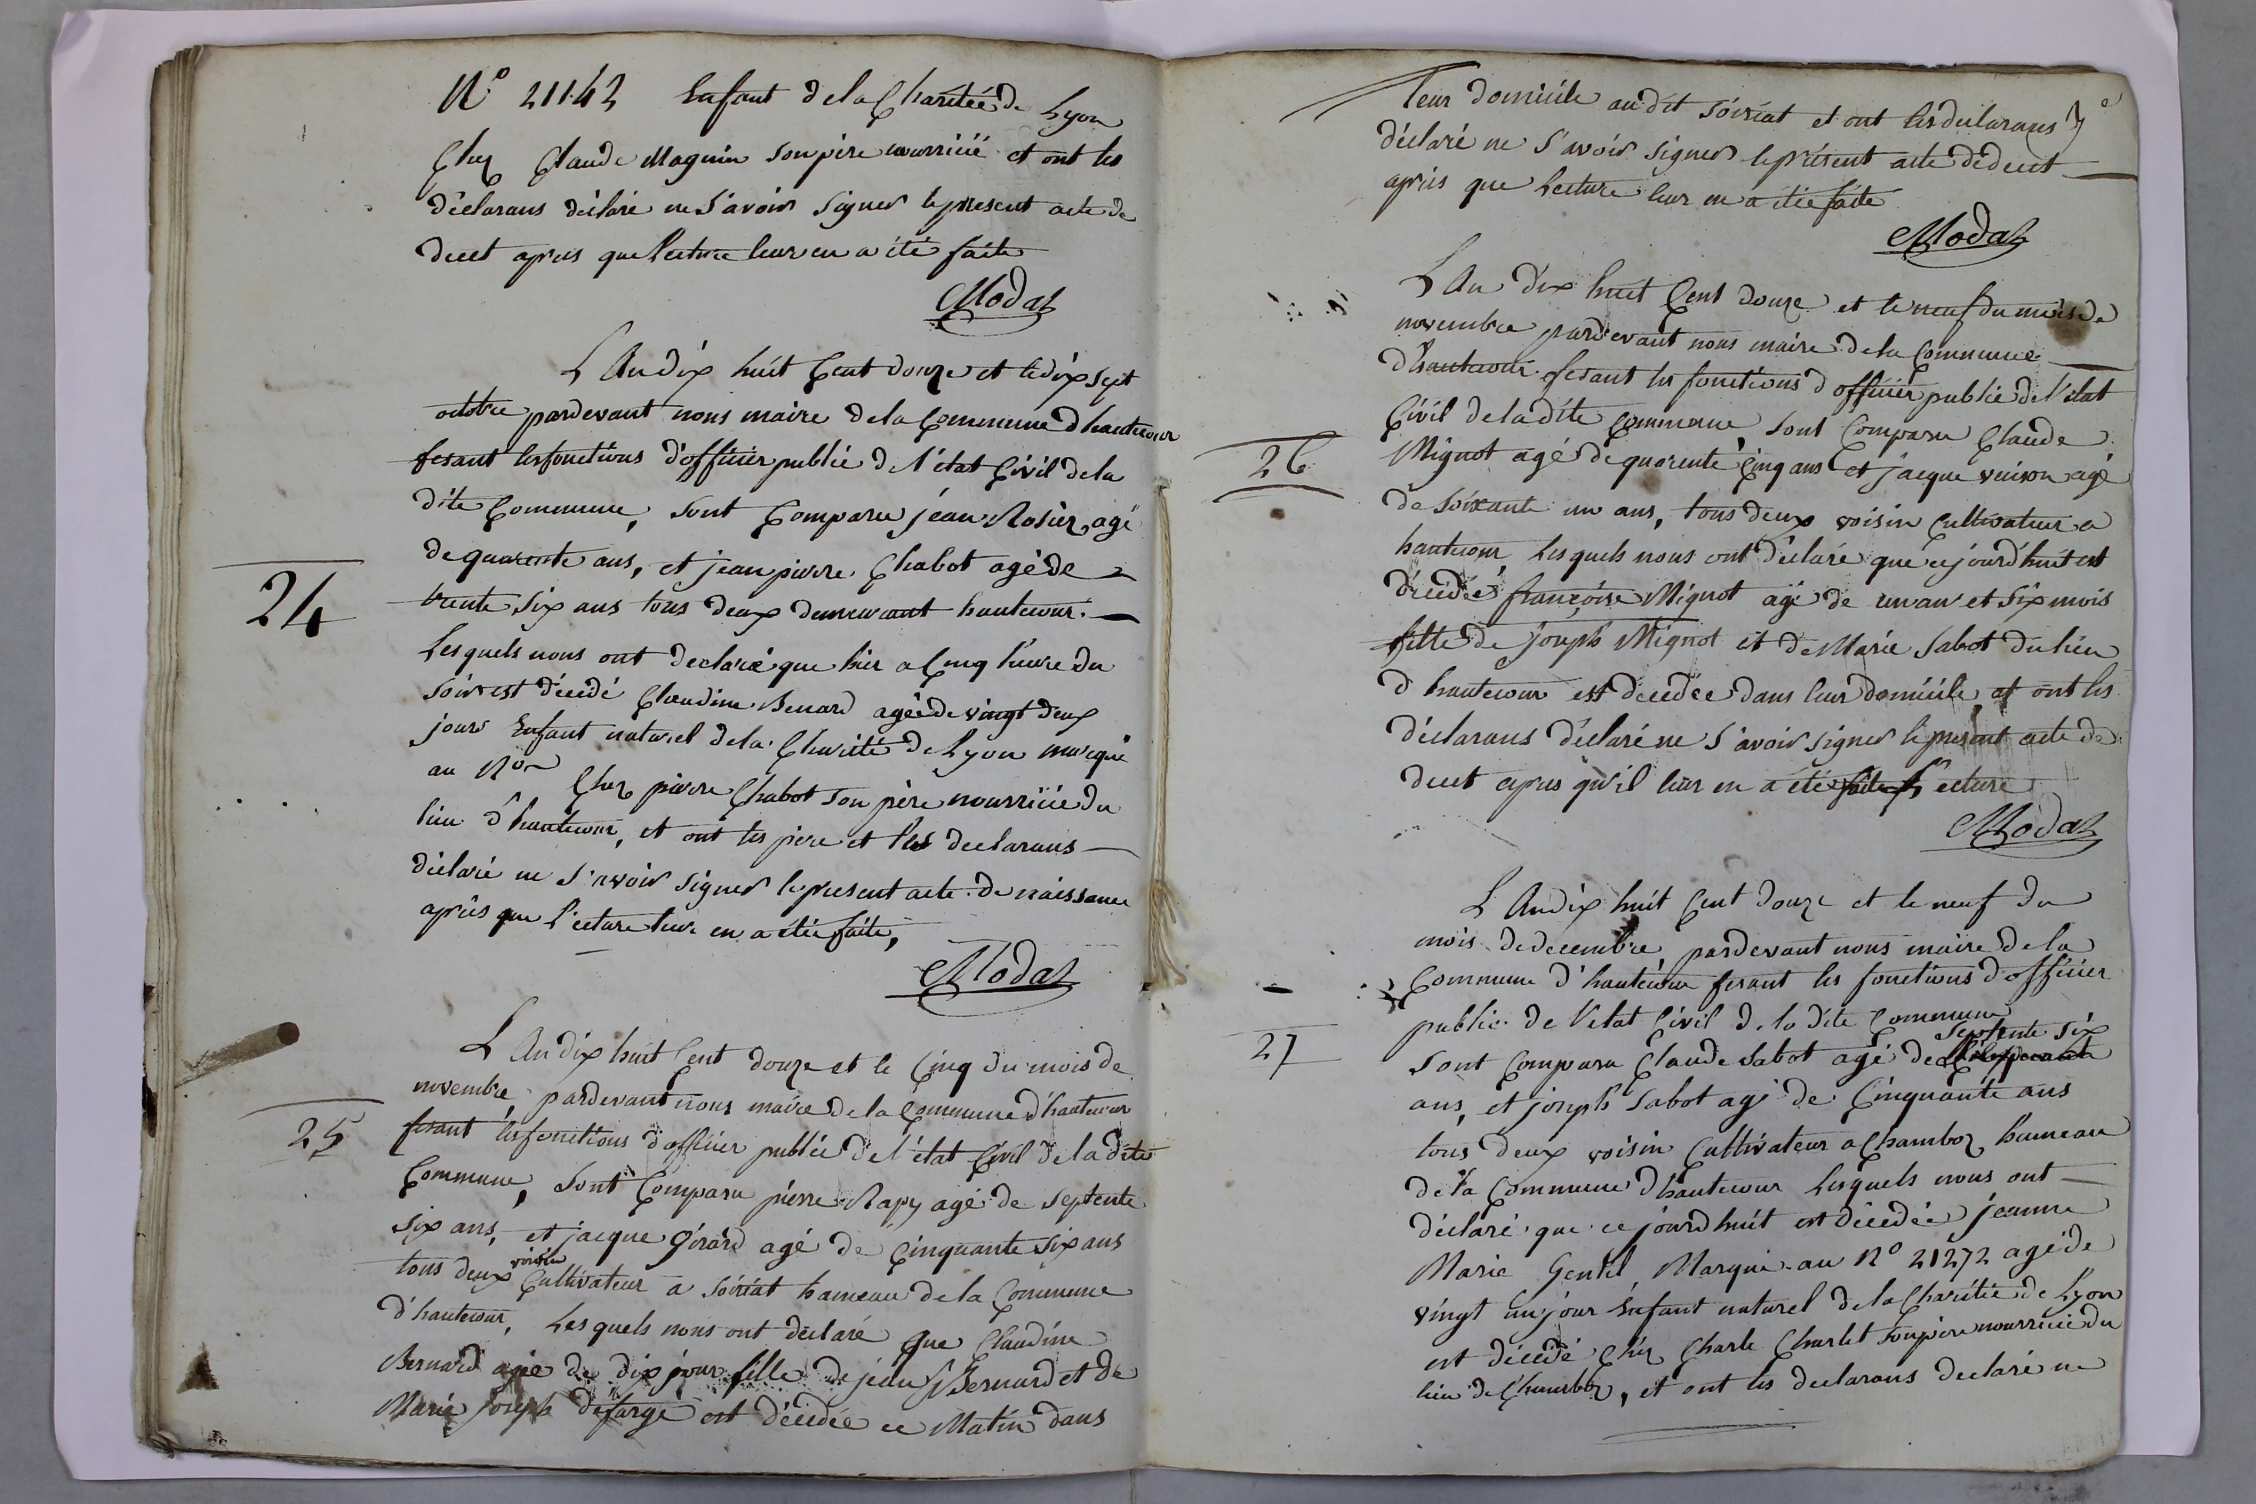 N° 21142 Enfant de la Charitée de Lyon
Chez Claude Magnin son père nourricié et ont les
déclarans déclaré ne s'avoir signer le present acte de
decet apres que lecture leur en a été faite
Modas
L'An dix huit Cent douze et le dix sept
octobre pardevant nous maire de la Commune d'hautecour
fesant les fonctions d'officier public de l'état Civil de la
dite Commune, sont Comparu jean Rosier agé
de quarente ans, et jean pierre Chabot agé de
24
trente six ans tous deux demeurant hautecour.
Lesquels nous ont declaré que hier a Cinq heure du
soir est décédé Claudine Benard agée de vingt deux
jours Enfant naturel de la Charité de Lyon marqué
au N° Chez pierre Chabot son père nourricié du
lieu d'hautecour, et ont les pere et les declarans
déclaré ne s'avoir signer le present acte de naissance
après que l'ecture leur en a étée faite,
Modas
L'An dix huit Cent douze et le Cinq du mois de
novembre, pardevant nous maire de la Commune d'hautecour
25
fesant les fonctions d'officier public de l'état Civil de la dite
Commune, sont Comparu pierre Rapy agé de septente
six ans, et jacque Girard agé de Cinquante six ans
tous deux voisin Cultivateur a soiriat hameau de la Commune
d'hautecour, Lesquels nous ont déclaré que Claudine
Bernard agée de dix jour fille de jean f Bernard et de
Marie Joseph defarge est décédée ce Matin dans
leur domicile audit soiriat et ont les declarans
déclaré ne s'avoir signer le présent acte de decet
après que Lecture leur en a étée faite
Modas
L'An dix huit Cent douze et le neuf du mois de
novembre pardevant nous maire de la Commune
d'hautecour fesant les fonctions d'officier public de l'état
Civil de la dite Commune, sont Comparu Claude
26
Mignot agé de quarente Cinq ans et jacque vuison agé
de soixante un ans, tous deux voisin Cultivateur a
hautecour, Lesquels nous ont déclaré que cejourd'huit est
décédée françoise Mignot agé de un an et six mois
fille de joseph Mignot et de Marie Sabot du lieu
d'hautecour est decedée dans leur domicile, et ont les
déclarans déclaré ne s'avoir signer le present acte de
decet apres qu'il leur en a été faite lecture
Modas
L'An dix huit Cent douze et le neuf du
mois de decembre, pardevant nous maire de la
Commune d'hautecour fesant les fonctions d'officier
public de l'etat Civil de la dite Commune
27
sont Comparu Claude Sabot agé de septente six
ans, et joseph Sabot agé de Cinquante ans
tous deux voisin Cultivateur a Chamboz hameau
de la Commune d'hautecour Lesquels nous ont
déclaré que ce jourd'huit est décédée jeanne
Marie Gentil, Marqué au N° 21272 agé de
vingt un jour Enfant naturel de la Charitée de Lyon
est décédé chez Charle Charlet son père nourricié du
lieu de Chamboz, et ont les declarans declaré ne